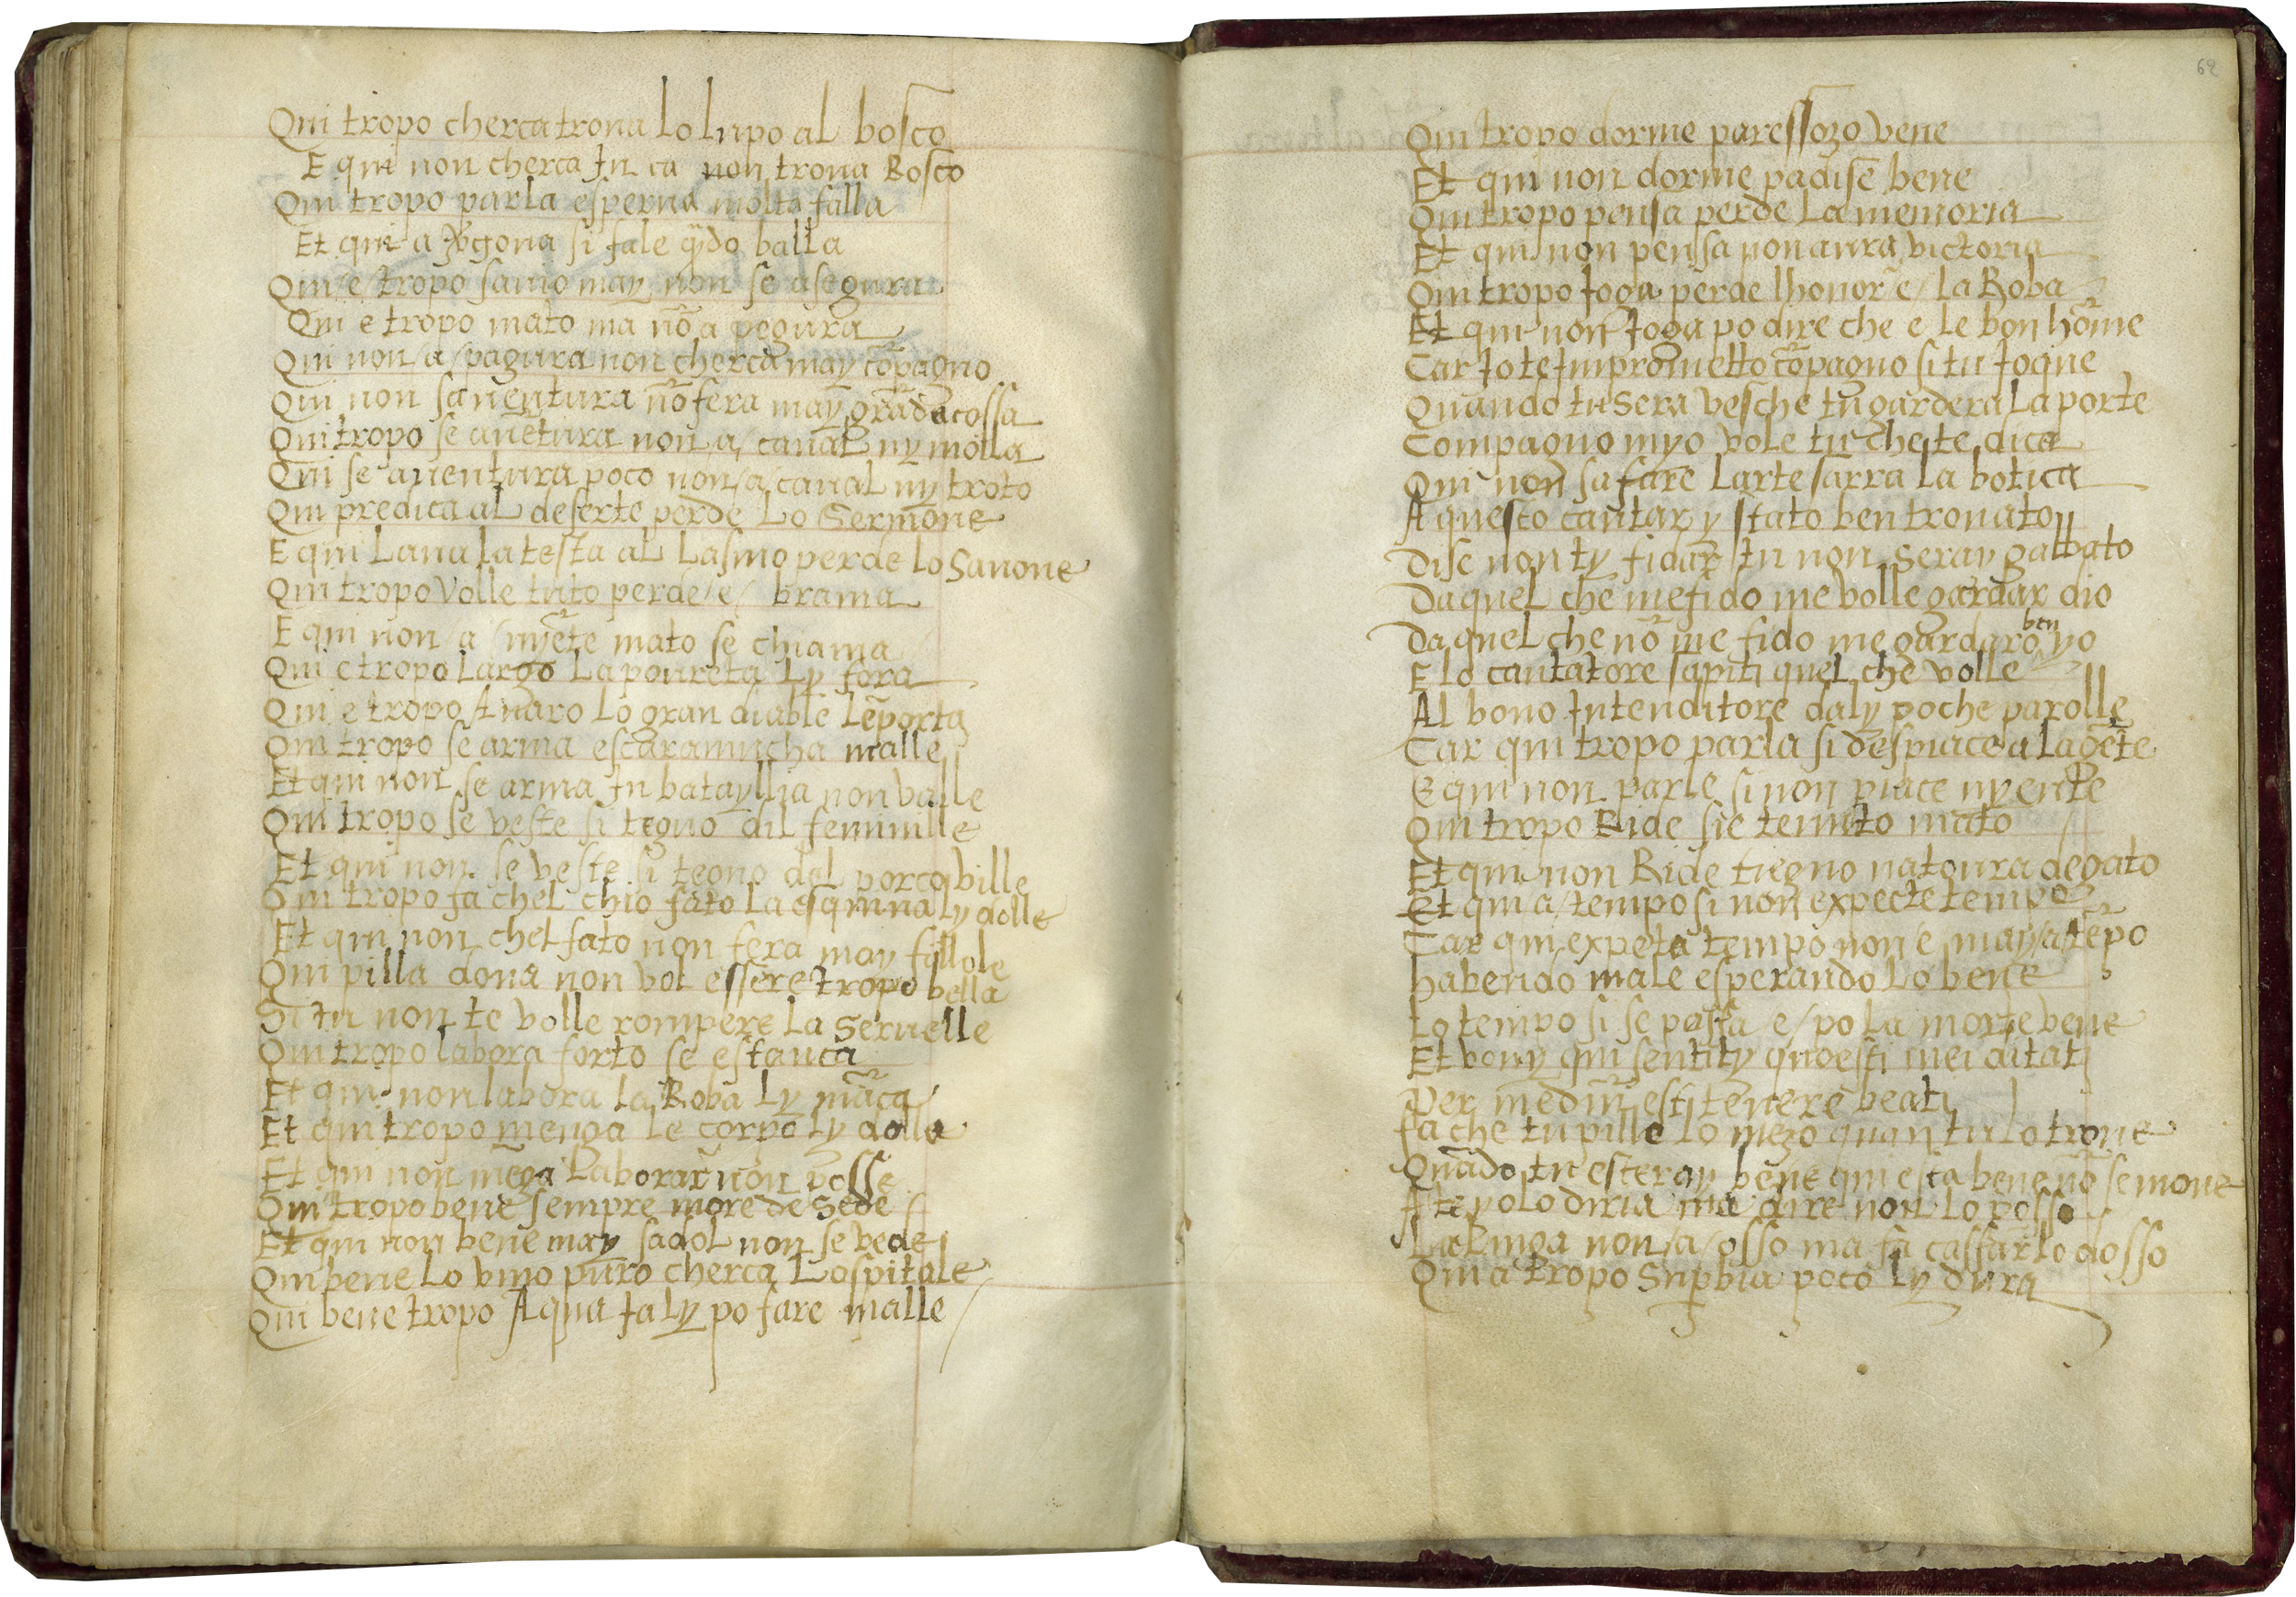 Qui tropo cherca troua lo lupo al bosco
E qui non cherca In ca non troua Bosco
Qui tropo parla esperua molta falla
Et qui a si fale q̃do balla
Qui e tropo sauio may non se asegura
Qui e tropo mato ma nõ a pegura
Qui non a pagura non cherca may cõpagno
Qui non sauentura nõ fera may grãda cossa
Qui tropo se auẽtura non a caual ny molla
Qui se auentura poco non a caual ny troto
Qui predica al deserte perde Lo Sermone
E qui Laua la testa al Lasino perde lo Sauone
Qui tropo volle tuto perde e brama
E qui non a nyẽte mato se chiama
Qui e tropo Largo La poureta Ly fora
Qui e tropo Auaro Lo gran diable Lẽporta
Qui tropo se arma escaramucha malle
Et qui non se arma In batayllia non valle
Qui tropo se veste si tegno dil feminille
Et qui non se veste si tegno del porco ville
Qui tropo fa chel chio fato la esquina ly dolle
Et qui non chel fato non fera may fillole
Qui pilla dona non vol essere tropo bella
Si tu non te volle rompere la Seruelle
Qui tropo labora forto se estanca
Et qui non labora la Roba Ly mãca
Et qui tropo menga le corpo ly dolle
Et qui non mẽga Laborar non posse
Qui tropo beue sempre more de Sede
Et qui non beue may sadol non se vede
Qui beue Lo vino puro cherca Lospitale
Qui beue tropo Aqua fa Ly po fare malle
62
Qui tropo dorme paressozo vene
Et qui non dorme padise bene
Qui tropo pensa perde La memoria
Et qui non pensa non aura victoria
Qui tropo Joga perde lhonor e la Roba
Et qui non Joga po dire che e le bon hõme
Car Jo te Imprometto cõpagno si tu Jogue
Quando tu Sera vesche tu gardera La porte
Compagno myo vole tu che te dica
Qui non sa fare Larte sarra La botica
A questo cantar y stato ben trouato
Dise non ty fidar tu non Seray gabbato
Da quel che me fido me volle gardar dio
Da quel che nõ me fido me gardaro ben yo
E lo cantatore sapiti quel che volle
Al bono Intenditore daly poche parolle
Car qui tropo parla si despiace a la gẽte
E qui non parle si non piace nyente
Qui tropo Ride sie tenuto mato
Et qui non Ride tiegno natoura de gato
Et qui a tempo si non expecte tempo
Car qui expeta tempo non e may a tẽpo
habendo male esperando Lo bene
Lo tempo si se passa e po la morte vene
Et vouy qui sentity questi mei ditati
Per esti tenere beati
fa che tu pille Lo mezo quan tu lo troue
Quãdo tu esteray bene qui esta bene nõ se moue
A te yo lo diria ma dire non Lo posso
La Linga non a osso ma fa cassar lo dosso
Qui a tropo Supbia poco Ly dura